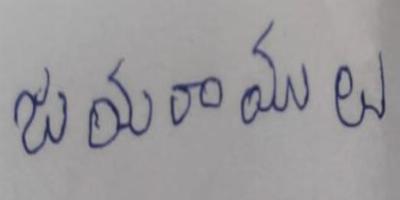 జయరాములు